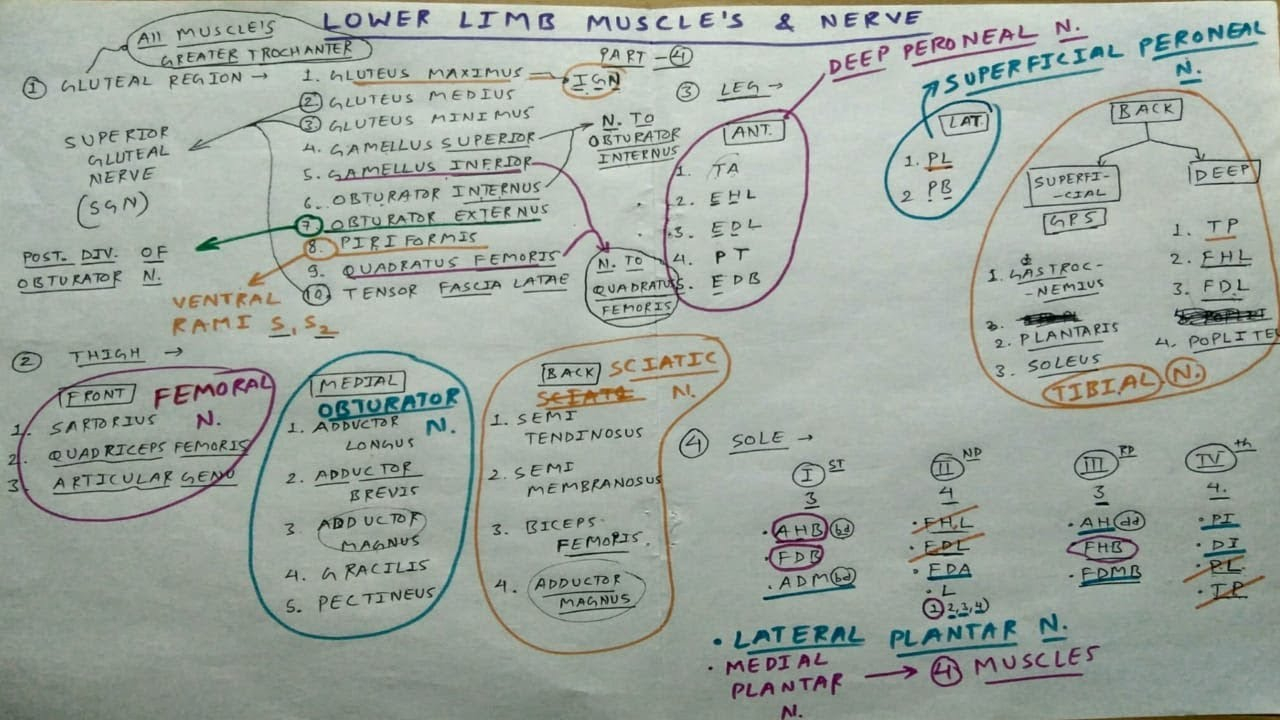 LOWER LIMB MUSCLE'S & NERVE
PART -④
All MUSCLE'S
GREATER TROCHANTER
① GLUTEAL REGION →
1. GLUTEUS MAXIMUS → IGN
② GLUTEUS MEDIUS
③ GLUTEUS MINIMUS
4. GAMELLUS SUPERIOR
5. GAMELLUS INFRIOR
6. OBTURATOR INTERNUS
⑦ OBTURATOR EXTERNUS
8. PIRIFORMIS
9. QUADRATUS FEMORIS
⑩ TENSOR FASCIA LATAE
SUPERIOR
GLUTEAL
NERVE
(SGN)
POST. DIV. OF
OBTURATOR N.
VENTRAL
RAMI S1 S2
N. TO
OBTURATOR
INTERNUS
N. TO
QUADRATUS
FEMORIS
② THIGH →
FRONT FEMORAL
N.
1. SARTORIUS
2. QUADRICEPS FEMORIS
3. ARTICULAR GENU
MEDIAL
OBTURATOR
N.
1. ADDUCTOR
LONGUS
2. ADDUCTOR
BREVIS
3 ADDUCTOR
MAGNUS
4. GRACILIS
5. PECTINEUS
BACK SCIATIC
N.
1. SEMI
TENDINOSUS
2. SEMI
MEMBRANOSUS
3. BICEPS
FEMORIS.
4. ADDUCTOR
MAGNUS
③ LEG →
DEEP PERONEAL N.
ANT.
1. TA
2. EHL
3. EDL
4. PT
5. EDB
SUPERFICIAL PERONEAL
N.
LAT
1. PL
2 PB
BACK
SUPERFI-
-CIAL
GPS
1. GASTROC-
-NEMIUS
2. PLANTARIS
3. SOLEUS
DEEP
1. TP
2. FHL
3. FDL
4. POPLITE
TIBIAL N.
④ SOLE →
I ST
3
• AHB bd
• FDB
• ADM bd
II ND
4
• FHL
• FDL
• FDA
• L
① 2,3,4)
III RD
3
• AH dd
FHB
• FDMB
IV th
4.
• PI
• DI
• PL
• TP
• LATERAL PLANTAR N.
• MEDIAL
PLANTAR
N.
→ ④ MUSCLES